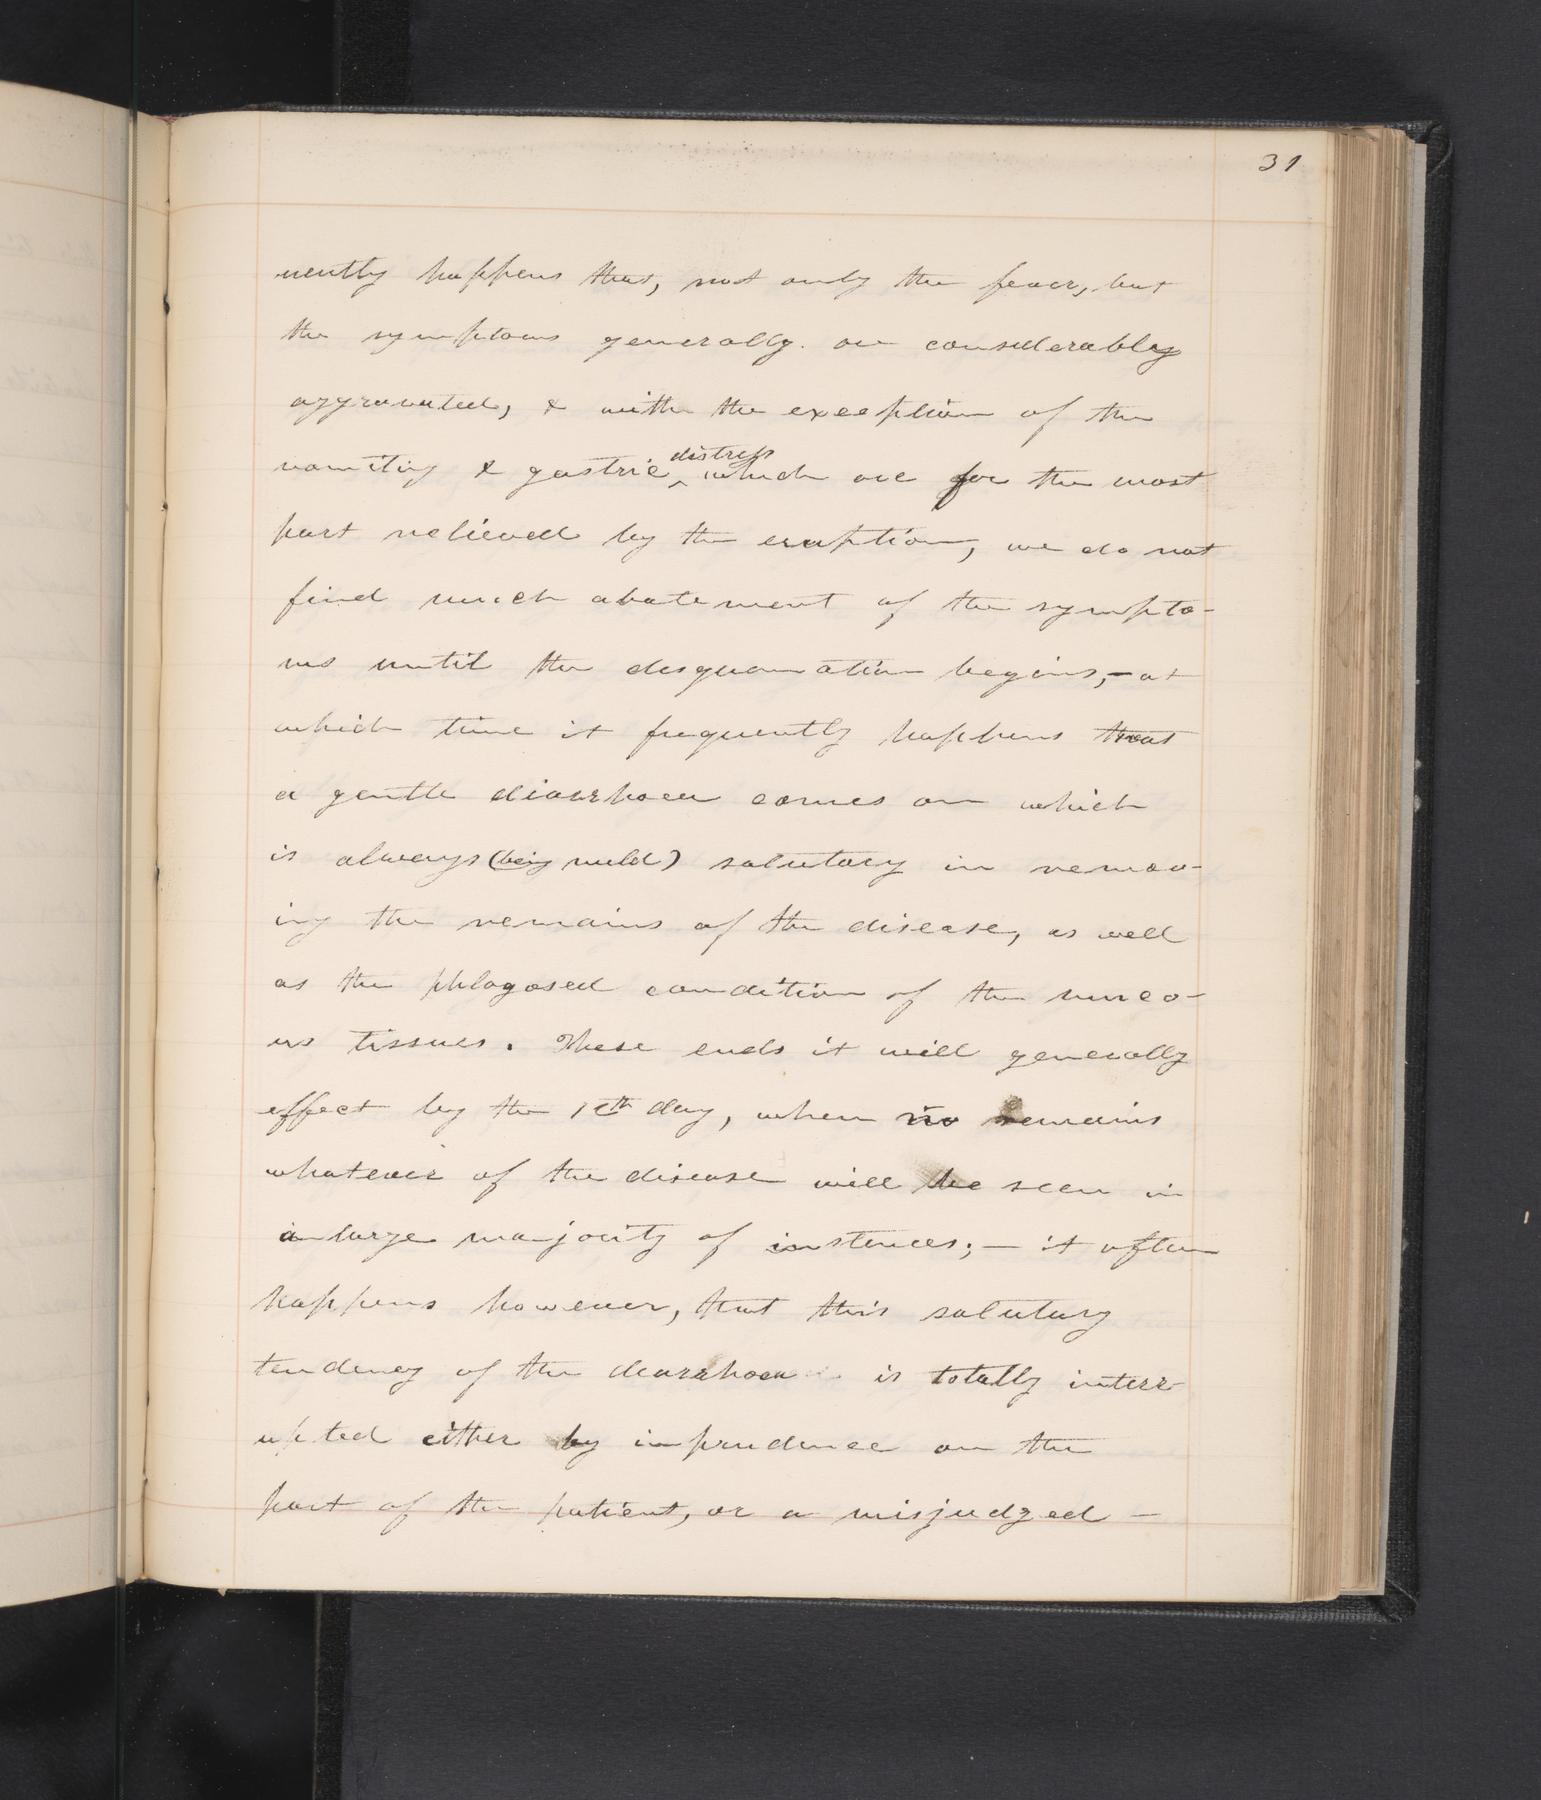 31
uently happens that, not only the fever, but
the symptoms generally are considerably
aggravated, & with the exception of the
distress
vomiting & gastric ‸ which are for the most
part relieved by the eruption, we do not
find much abatement of the sympto-
ms until the desquamation begins, - at
which time it frequently happens that
a gentle diarrhoea comes on which
is always (being mild) salutary in remov-
ing the remains of the disease, as well
as the phlogosed condition of the muco-
us tissues. These ends it will generally
effect by the day, when no remains
whatever of the disease will be seen in
a large majority of instances; — it often
happens however, that this salutary
tendency of the diarrhoea is totally interr
upted either by imprudence on the
part of the patient, or a misjudged —